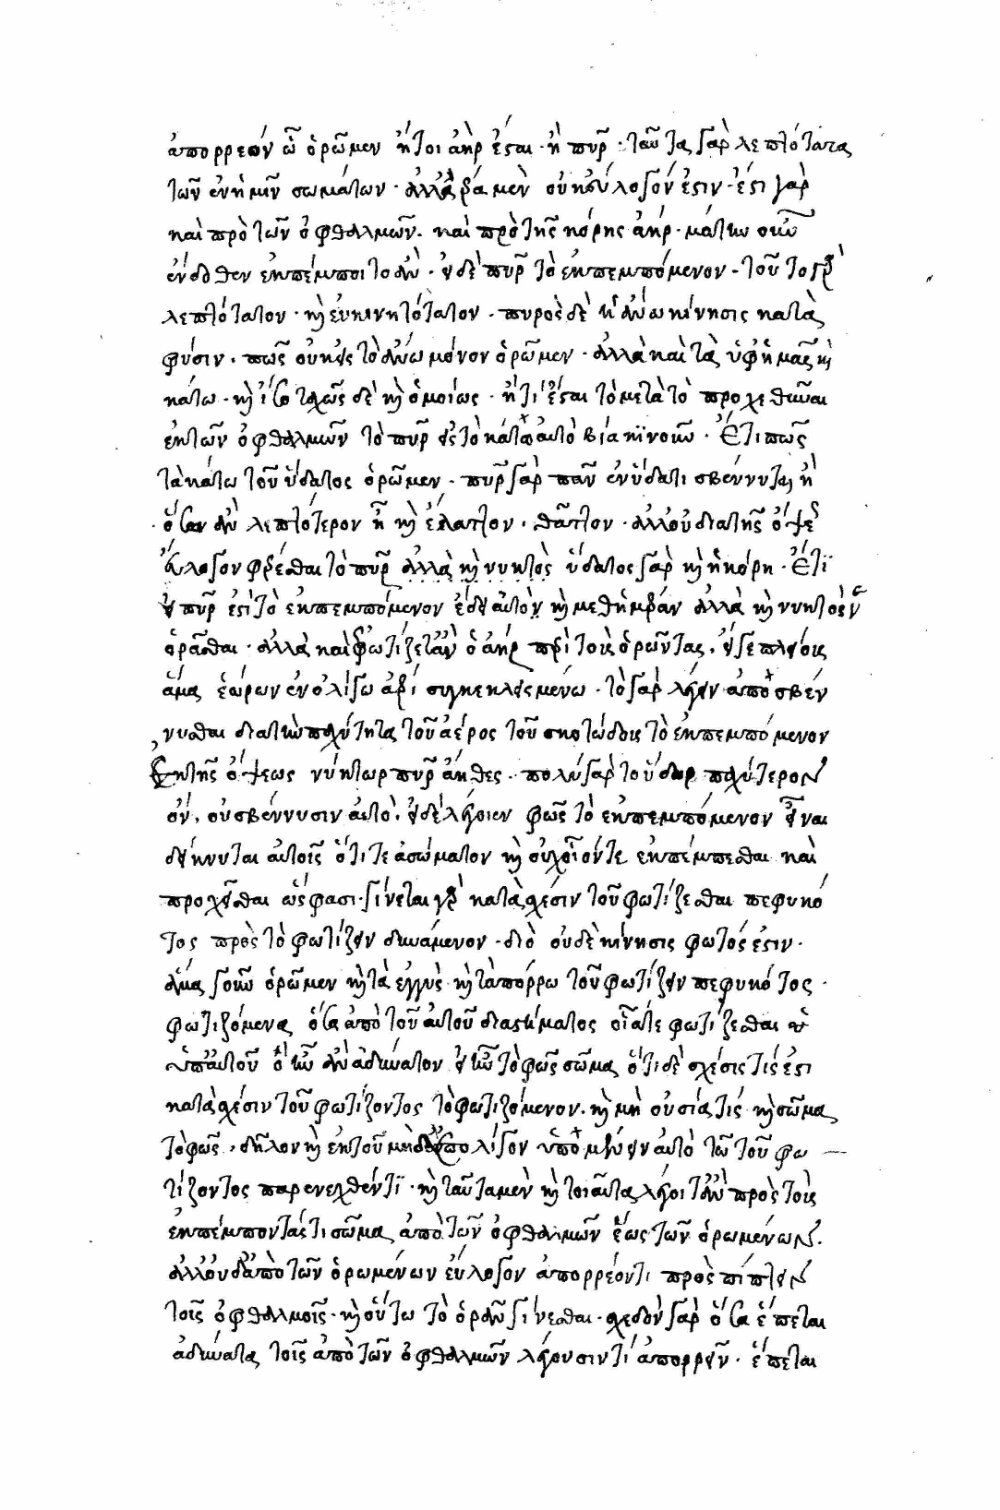 ἀπορρεόν ᾧ ὁρῶμεν ἤτοι ἀὴρ ἔσται · ἢ πῦρ · ταῦτα γὰρ λεπτότατα
τῶν ἐν ἡμῖν σωμάτων · ἀλλ' ἀέρα μὲν οὐκ εὔλογόν ἐστιν · ἔστι γὰρ
καὶ πρὸ τῶν ὀφθαλμῶν · καὶ πρὸ τῆς κόρης ἀήρ · μάτην οὖν
ἔνδοθεν ἐκπέμποιτο ἄν · εἰ δὲ πῦρ τὸ ἐκπεμπόμενον · τοῦτο γὰρ
λεπτότατον · καὶ εὐκινητότατον · πυρὸς δὲ ἡ ἄνω κίνησις κατὰ
φύσιν · πῶς οὐκ εἰς τὸ ἄνω μόνον ὁρῶμεν · ἀλλὰ καὶ τὰ ὑφ' ἡμᾶς καὶ
κάτω · καὶ ἰσοταχῶς δὲ καὶ ὁμοίως · ἤ τι ἔσται τὸ μετὰ τὸ προχεθῆναι
ἐκ τῶν ὀφθαλμῶν τὸ πῦρ εἰς τὸ κάτω αὐτὸ βίᾳ κινοῦν · Ἔτι πῶς
τὰ κάτω τοῦ ὕδατος ὁρῶμεν · πῦρ γὰρ πᾶν ἐν ὕδατι σβέννυται ἢ
ὅσον ἂν λεπτότερον ᾖ καὶ ἔλαττον · θᾶττον · ἀλλ' οὐ διὰ τῆς ὄψεως
εὔλογον φέρεσθαι τὸ πῦρ ἀλλὰ καὶ νυκτὸς ὕδατος γὰρ καὶ ἡ κόρη · Ἔτι
εἰ πῦρ ἐστι τὸ ἐκπεμπόμενον ἔδει αὐτὸν καὶ μεθ' ἡμέραν ἀλλὰ καὶ νυκτὸς
ὁρᾶσθαι · ἀλλὰ καὶ φωτίζετ' ἂν ὁ ἀὴρ περὶ τοὺς ὁρῶντας · εἴ γε πλείους
ἅμα ἑώρων ἐν ὀλίγῳ ἀέρι συγκεκλεισμένῳ · τὸ γὰρ λέγειν ἀποσβέν
νυσθαι διὰ τὴν παχύτητα τοῦ ἀέρος τοῦ σκοτώδους τὸ ἐκπεμπόμενον
ἐκ τῆς ὄψεως νύκτωρ πῦρ ἀηθες · πολὺ γὰρ τὸ ὕδωρ παχύτερον
ὄν · οὐ σβέννυσιν αὐτό · εἰ δὲ λέγοιεν φῶς τὸ ἐκπεμπόμενον εἶναι
δείκνυται αὐτοῖς ὅτι τε ἀσώματον καὶ οὐχ οἷόν τε ἐκπέμπεσθαι καὶ
προχεῖσθαι ὥς φασι · γίνεται γὰρ κατὰ σχέσιν τοῦ φωτίζεσθαι πεφυκό
τος πρὸς τὸ φωτίζειν δυνάμενον · διὸ οὐδὲ κίνησις φωτός ἐστιν ·
ἅμα γοῦν ὁρῶμεν καὶ τὰ ἐγγὺς καὶ τὰ πόρρω τοῦ φωτίζειν πεφυκότος ·
φωτιζόμενα ὅσα ἀπὸ τοῦ αὐτοῦ διαστήματος οἷά τε φωτίζεσθαι
ὑπ' αὐτοῦ ὃ ἦν ἂν ἀδύνατον εἰ ἦν τὸ φῶς σῶμα ὅτι δὲ σχέσις τίς ἐστι
κατὰ σχέσιν τοῦ φωτίζοντος τὸ φωτιζόμενον · καὶ μὴ οὐσία τις καὶ σῶμα
τὸ φῶς · δῆλον καὶ ἐκ τοῦ ὑπομένειν αὐτὸ τῷ τοῦ φω
τίζοντος παρενεχθέντι · καὶ ταῦτα μὲν καὶ τοιαῦτα λέγοιτ' ἂν πρὸς τοὺς
ἐκπέμποντάς τι σῶμα ἀπὸ τῶν ὀφθαλμῶν ἕως τῶν ὁρωμένων ·
ἀλλ' οὐδ' ἀπὸ τῶν ὁρωμένων εὔλογον ἀπορρέον τι προσπίπτειν
τοῖς ὀφθαλμοῖς · καὶ οὕτω τὸ ὁρᾶν γίνεσθαι · σχεδὸν γὰρ ὅσα ἕπεται
ἀδύνατα τοῖς ἀπὸ τῶν ὀφθαλμῶν λέγουσίν τι ἀπορρεῖν · ἕπεται